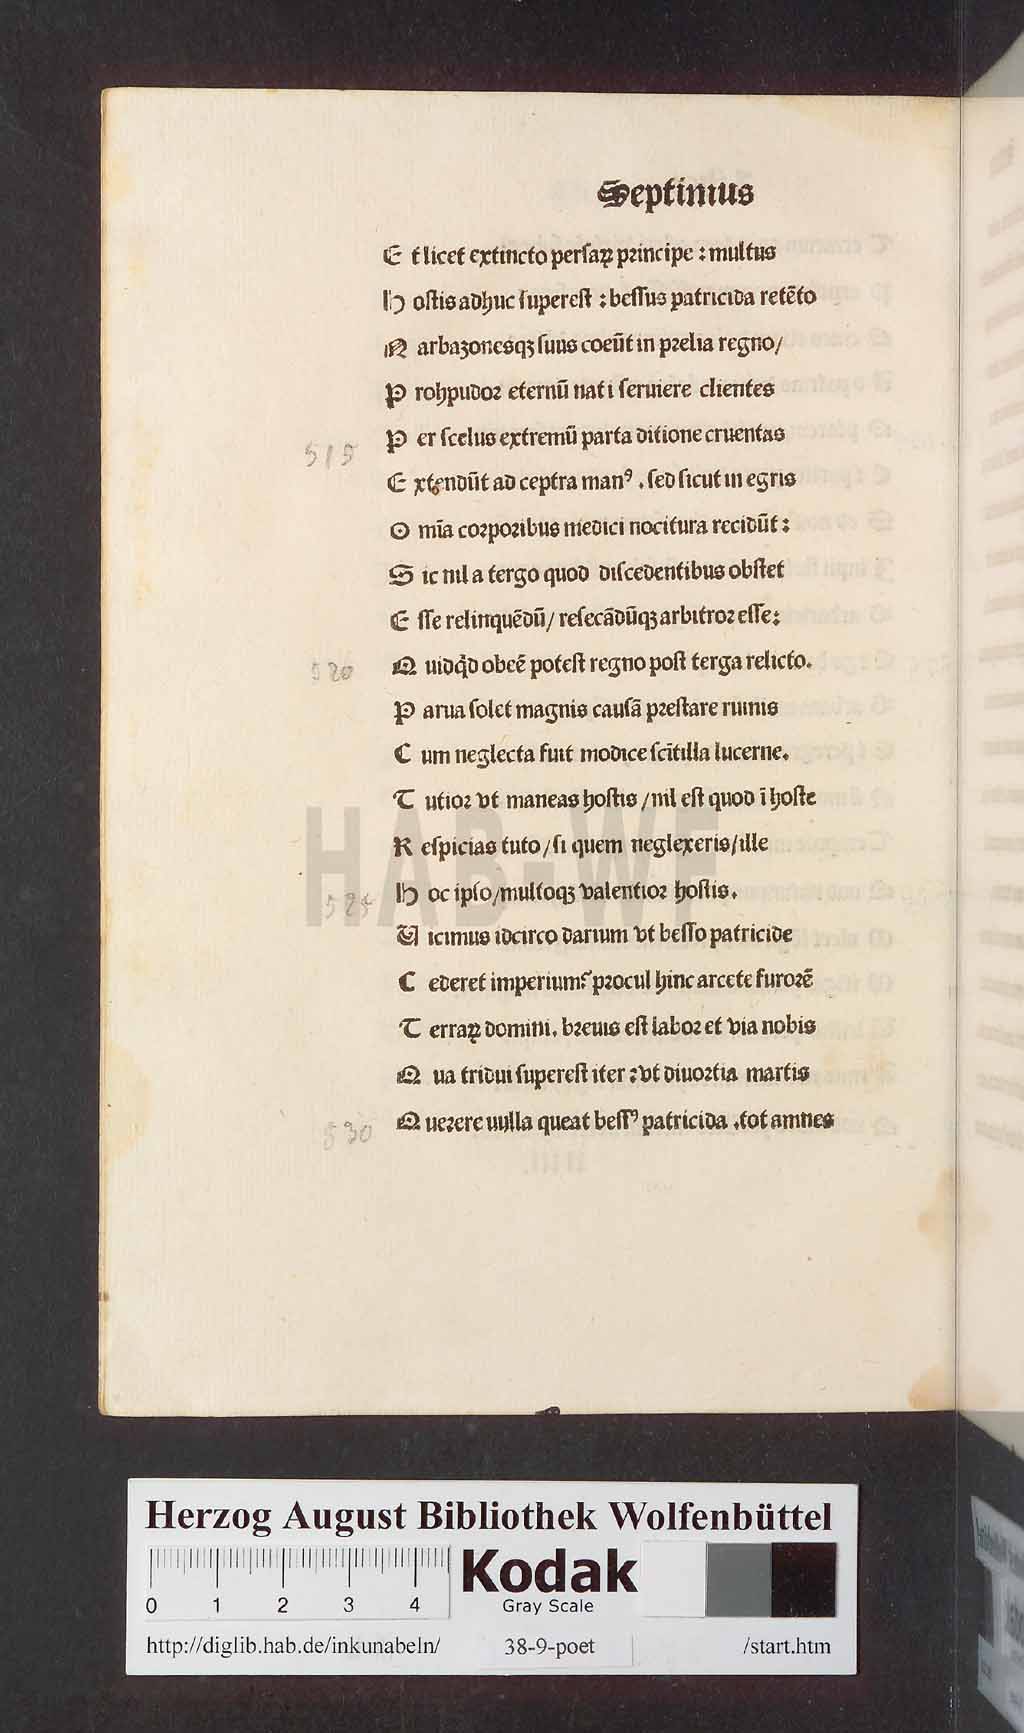 Septimus
E t licet extincto persaꝝ principe : multus
H ostis adhuc superest : bessus patricida retẽto
N arbazonesqꝫ suus coeũt in prelia regno/
P rohpudor eternũ nati seruiere clientes
515
P er scelus extremũ parta ditione cruentas
E xtendũt ad ceptra manꝰ . sed sicut in egris
O mĩa corporibus medici nocitura recidũt :
S ic nil a tergo quod discedentibus obstet
E sse relinquẽdũ/ resecãdũqꝫ arbitror esse:
520
Q uidq̃d obeẽ potest regno post terga relicto.
P arua solet magnis causã prestare ruinis
C um neglecta fuit modice scĩtilla lucerne.
T utior vt maneas hostis /nil est quod ĩ hoste
R espicias tuto/si quem neglexeris/ille
525
H oc ipso/multoqꝫ valentior hostis.
V icimus idcirco darium vt besso patricide
C ederet imperium? procul hinc arcete furorẽ
T erraꝝ domini. breuis est labor et via nobis
Q ua tridui superest iter : vt diuortia martis
530
Q uerere uulla queat bessꝰ patricida .tot amnes
HAB-WF
Herzog August Bibliothek Wolfenbüttel
0 1 2 3 4
Kodak
Gray Scale
http://diglib.hab.de/inkunabeln/ 38-9-poet /start.htm